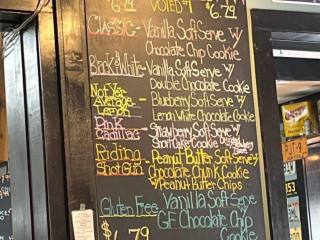 6.79 VOTED #1 6.79
CLASSIC - Vanilla Soft Serve W/
Chocolate Chip Cookie
Black & White - Vanilla Soft Serve W/
Double Chocolate Cookie
Not Your Average Lemon - Blueberry Soft Serve W/
Lemon White Chocolate Cookie
Pink Cadillac - Strawberry Soft Serve W/
Short Cake Cookie
Riding ShotGun - Peanut Butter Soft Serve W/
Chocolate Chunk Cookie
W/ Peanut Butter Chips
Gluten Free Vanilla Soft Serve
GF Chocolate Chip
Cookie
$6.79